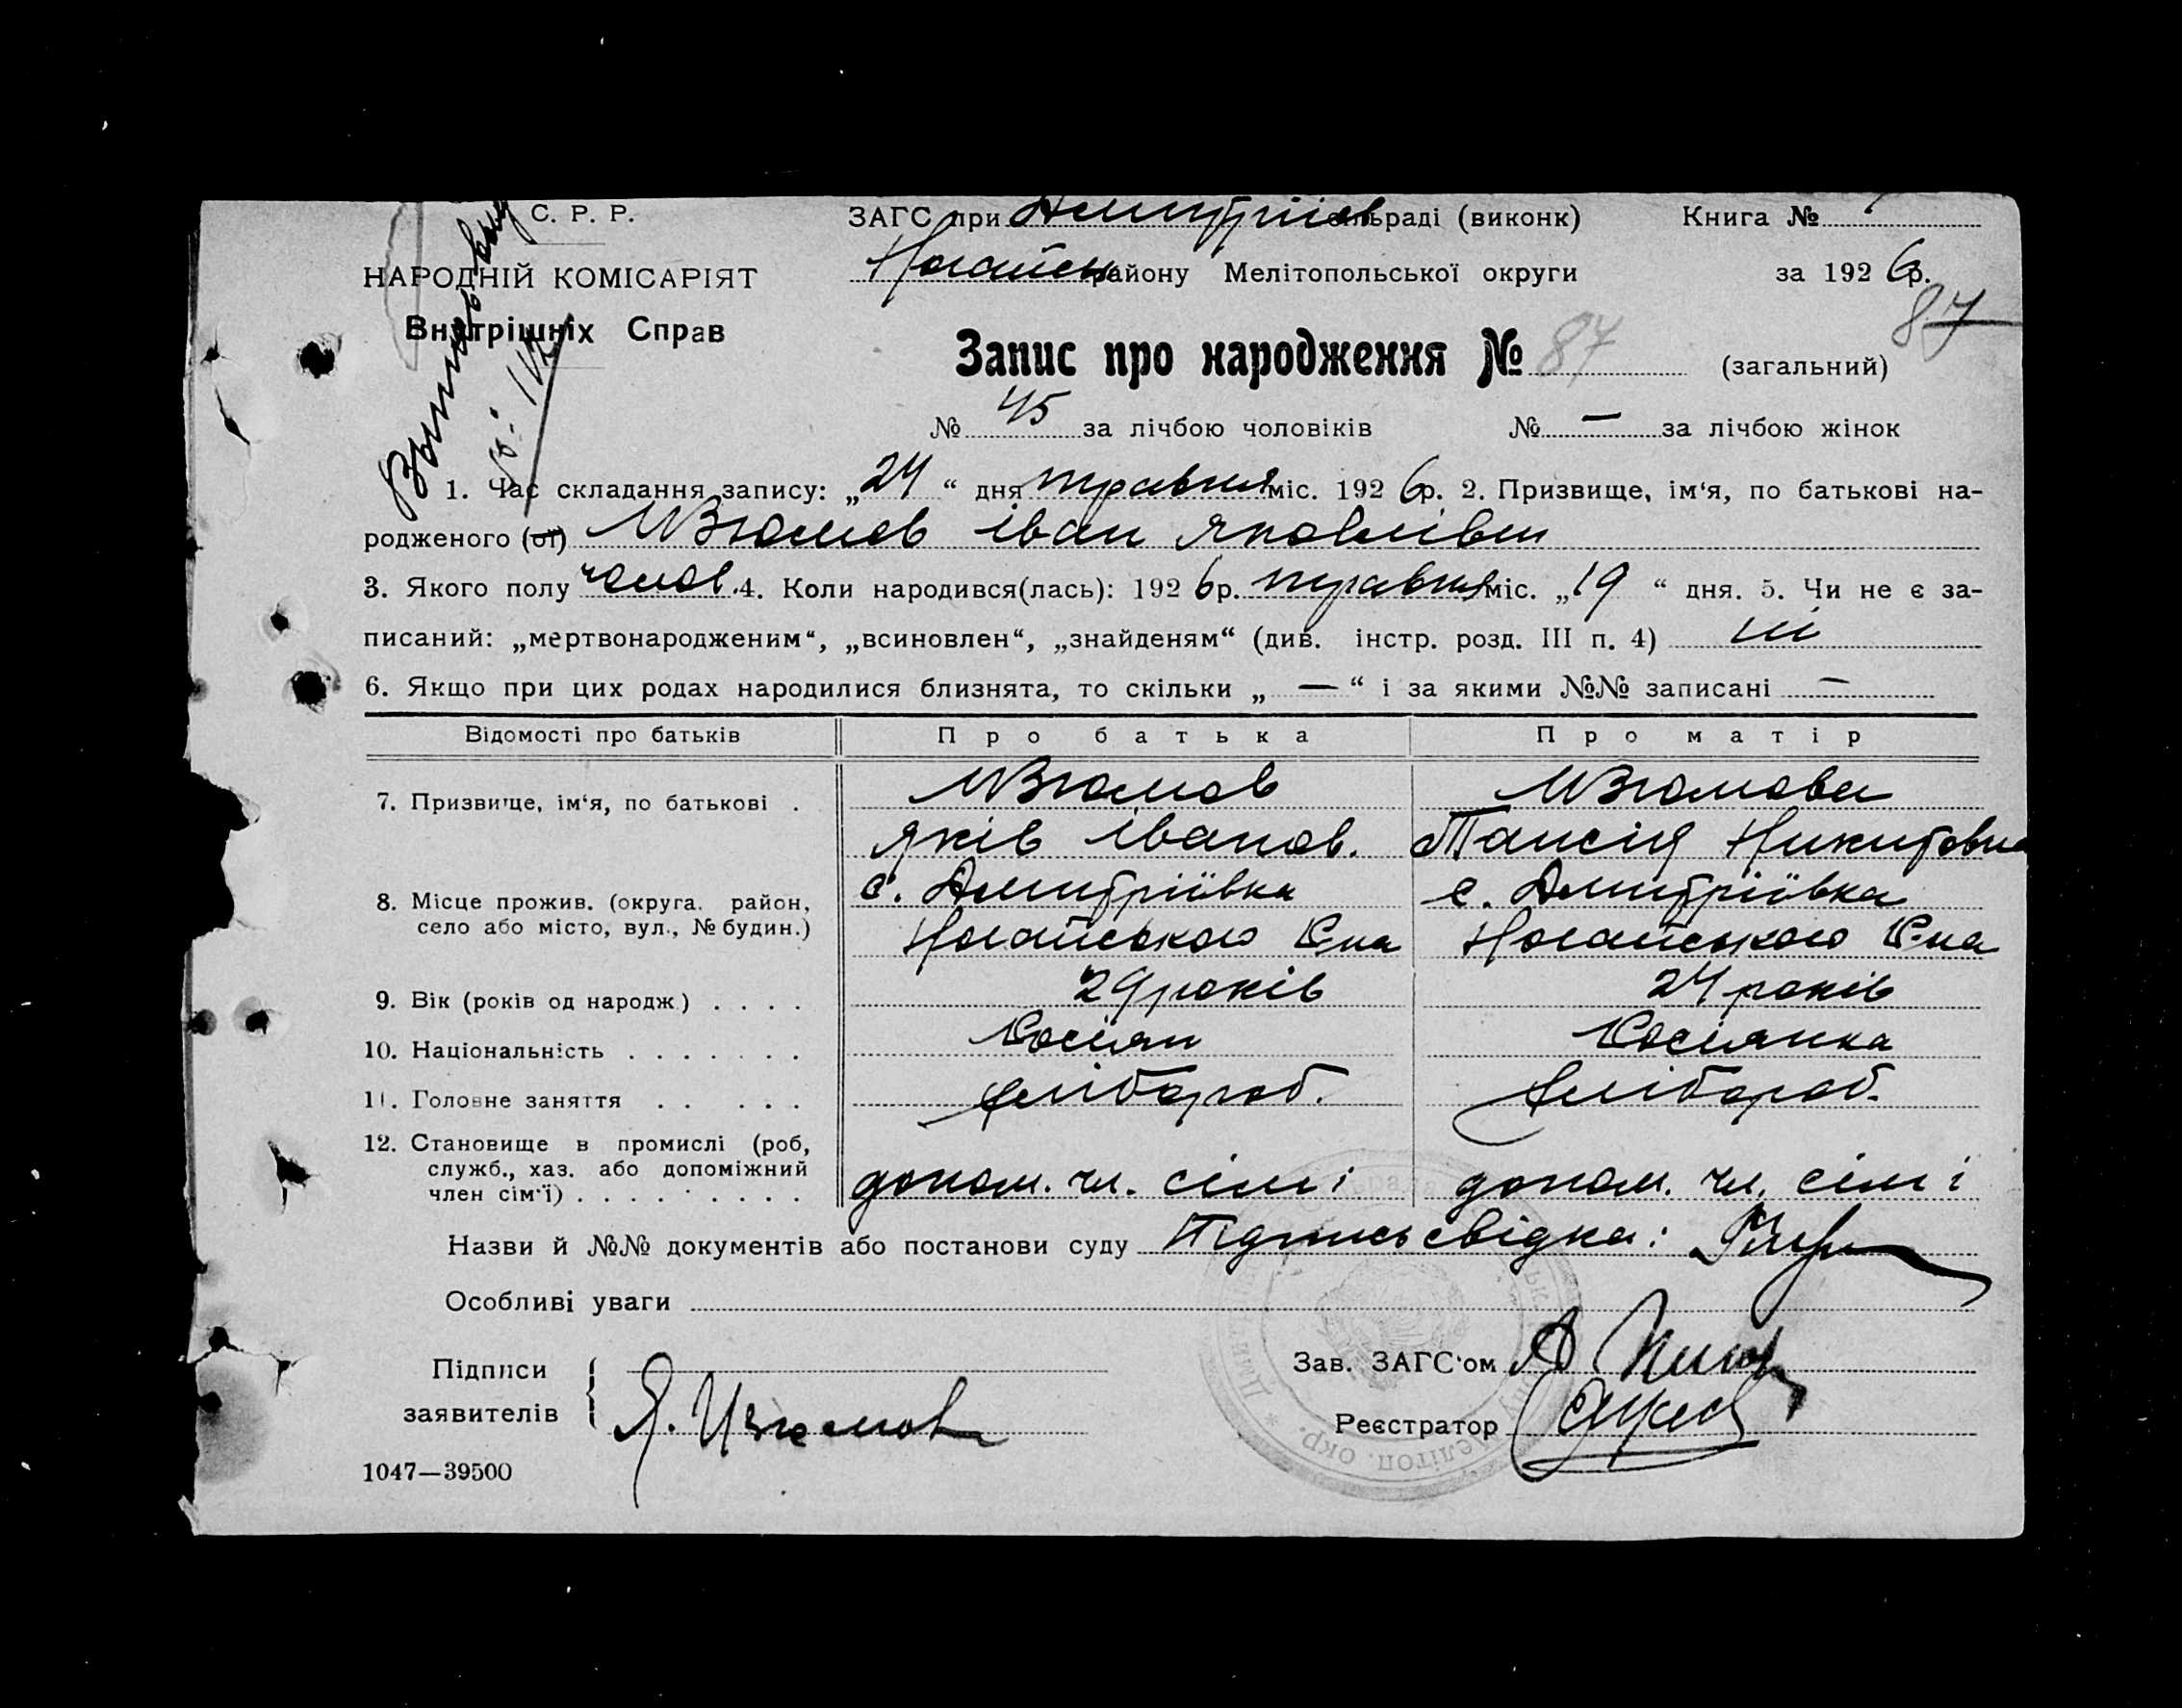 С. Р. Р.
ЗАГС при Дмитріїв сільраді (виконк) Книга №
НАРОДНІЙ КОМІСАРІЯТ
Внутрішніх Справ
Ногайськ району Мелітопольської округи за 1926р.
87
Запис про народження № 87 (загальний)
№ 45 за лічбою чоловіків № — за лічбою жінок
1. Час складання запису: „24“ дня травня міс. 1926р. 2. Призвище, ім‘я, по батькові на-
родженого (ої) Ізюмов Іван Яковлівич
3. Якого полу чолов. 4. Коли народився(лась): 1926р. травня міс. „19“ дня. 5. Чи не є за-
писаний: „мертвонародженим“, „всиновлен“, „знайденям“ (див. інстр. розд. III п. 4) ні
6. Якщо при цих родах народилися близнята, то скільки „ — “ і за якими №№ записані —
Відомості про батьків Про батька Про матір
7. Призвище, ім‘я, по батькові . Ізюмов Ізюмова
Яків Іванов. Таисія Никитовна
8. Місце прожив. (округа. район, с. Дмитріївка с. Дмитріївка
село або місто, вул., № будин.) Ногайського Р-на Ногайського Р-на
9. Вік (років од народж.) . . . . 29 років 24 років
10. Національність . . . . . . . Росіян Росіянка
11. Головне заняття . . . . . хлібороб. хлібороб.
12. Становище в промислі (роб,
служб., хаз. або допоміжний
член сім‘ї) . . . . . . . . . . допом. чл. сімі допом. чл. сімі
Назви й №№ документів або постанови суду Підпись свідка:
Особливі уваги
Підписи
заявителів Я. Изюмов
Зав. ЗАГС‘ом
Реєстратор
Мелітоп. окр.
1047—39500